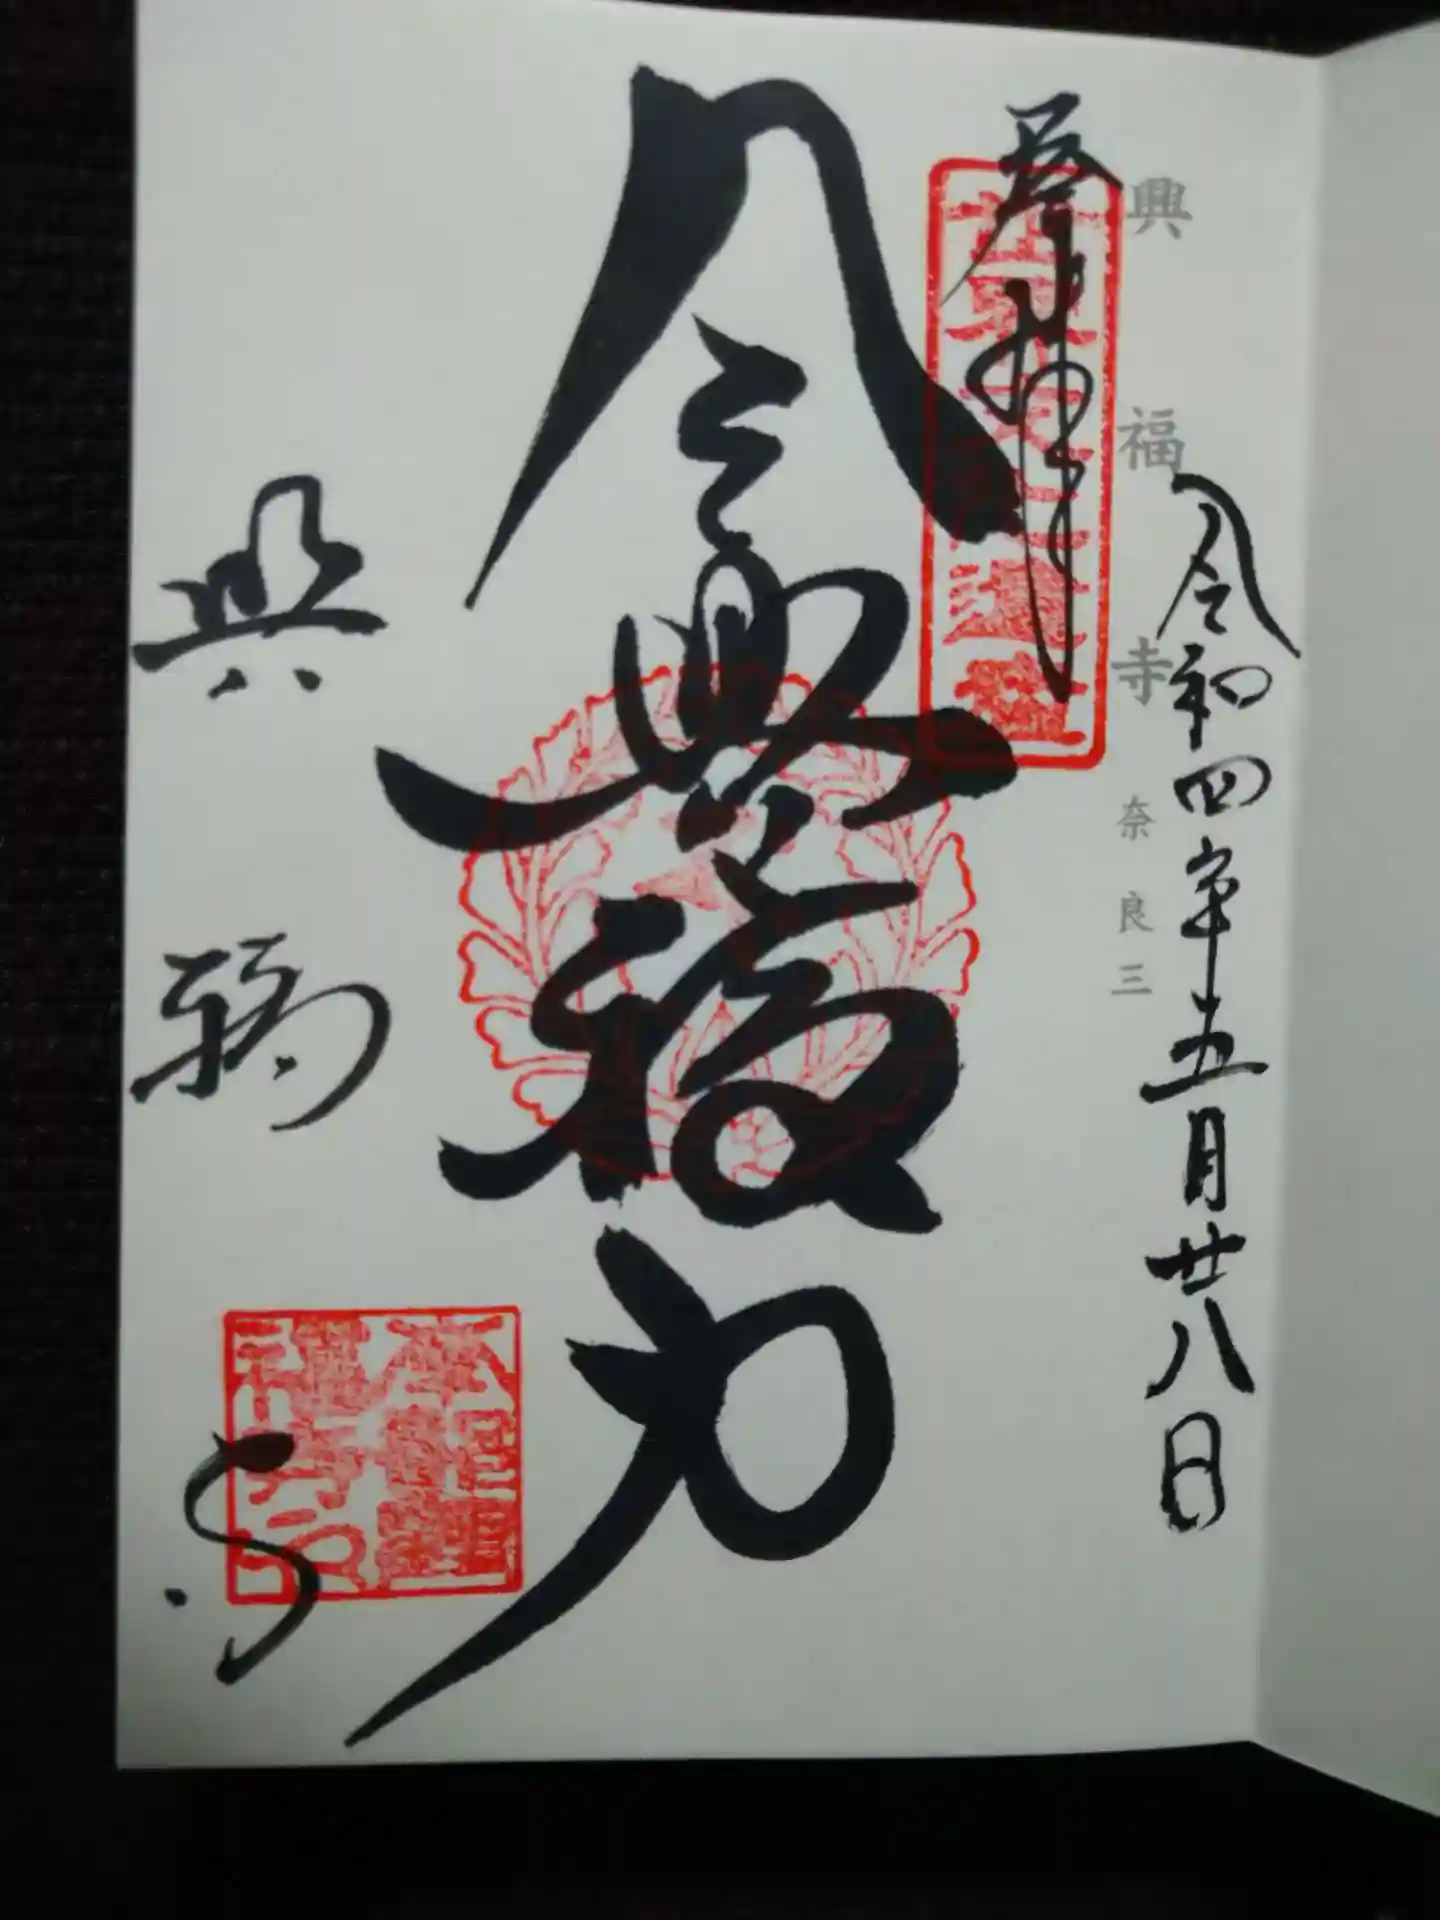 興福寺 奈良三
令和四年五月廿八日
奉拝
令興福力
興福寺